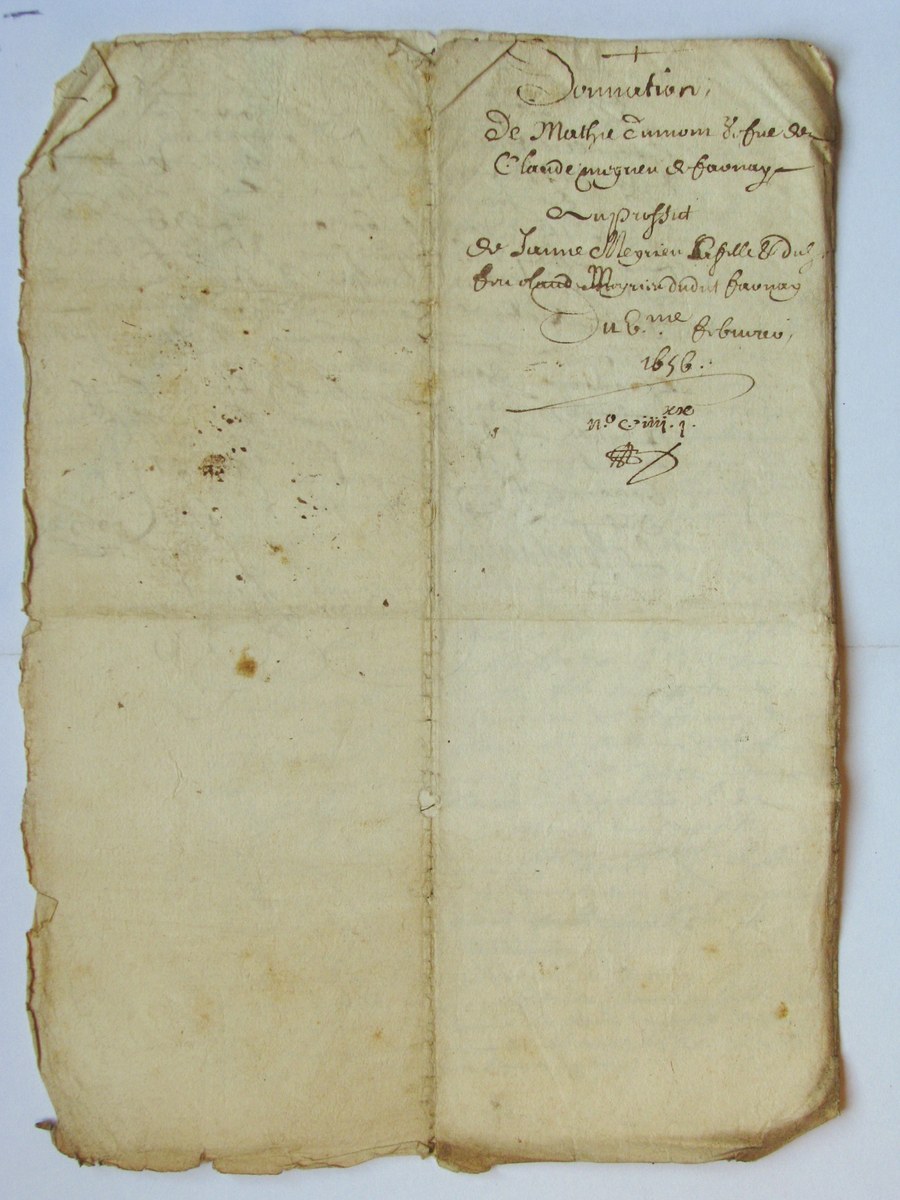 Donnation,
De Mathie Cumont & feue de
Claude meyrieu de faonay
Au proffict
de Janne Meyrieu sa fille & dud
feu claude Meyrieu dudit faonay
Du 6.me febvrier,
1656.
n.o C iiii.xx j.